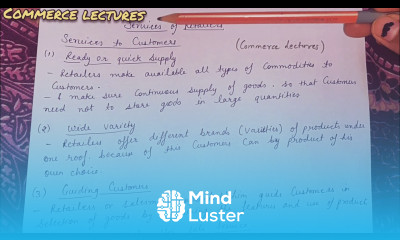 COMMERCE LECTURES
Services of Retailers
Services to Customers. (Commerce Lectures)
(1) Ready or quick Supply
- Retailers make available all types of Commodities to
Customers.
- & make sure Continuous Supply of goods. So that Customers
need not to store goods in large quantities
(2) Wide Variety
- Retailers offer different brands (Varieties) of products under
one roof because of this Customers Can buy product of his
own choice.
(3) Guiding Customers
- Retailers or guide Customers in
Selection of goods by features and use of product
Mind
Luster